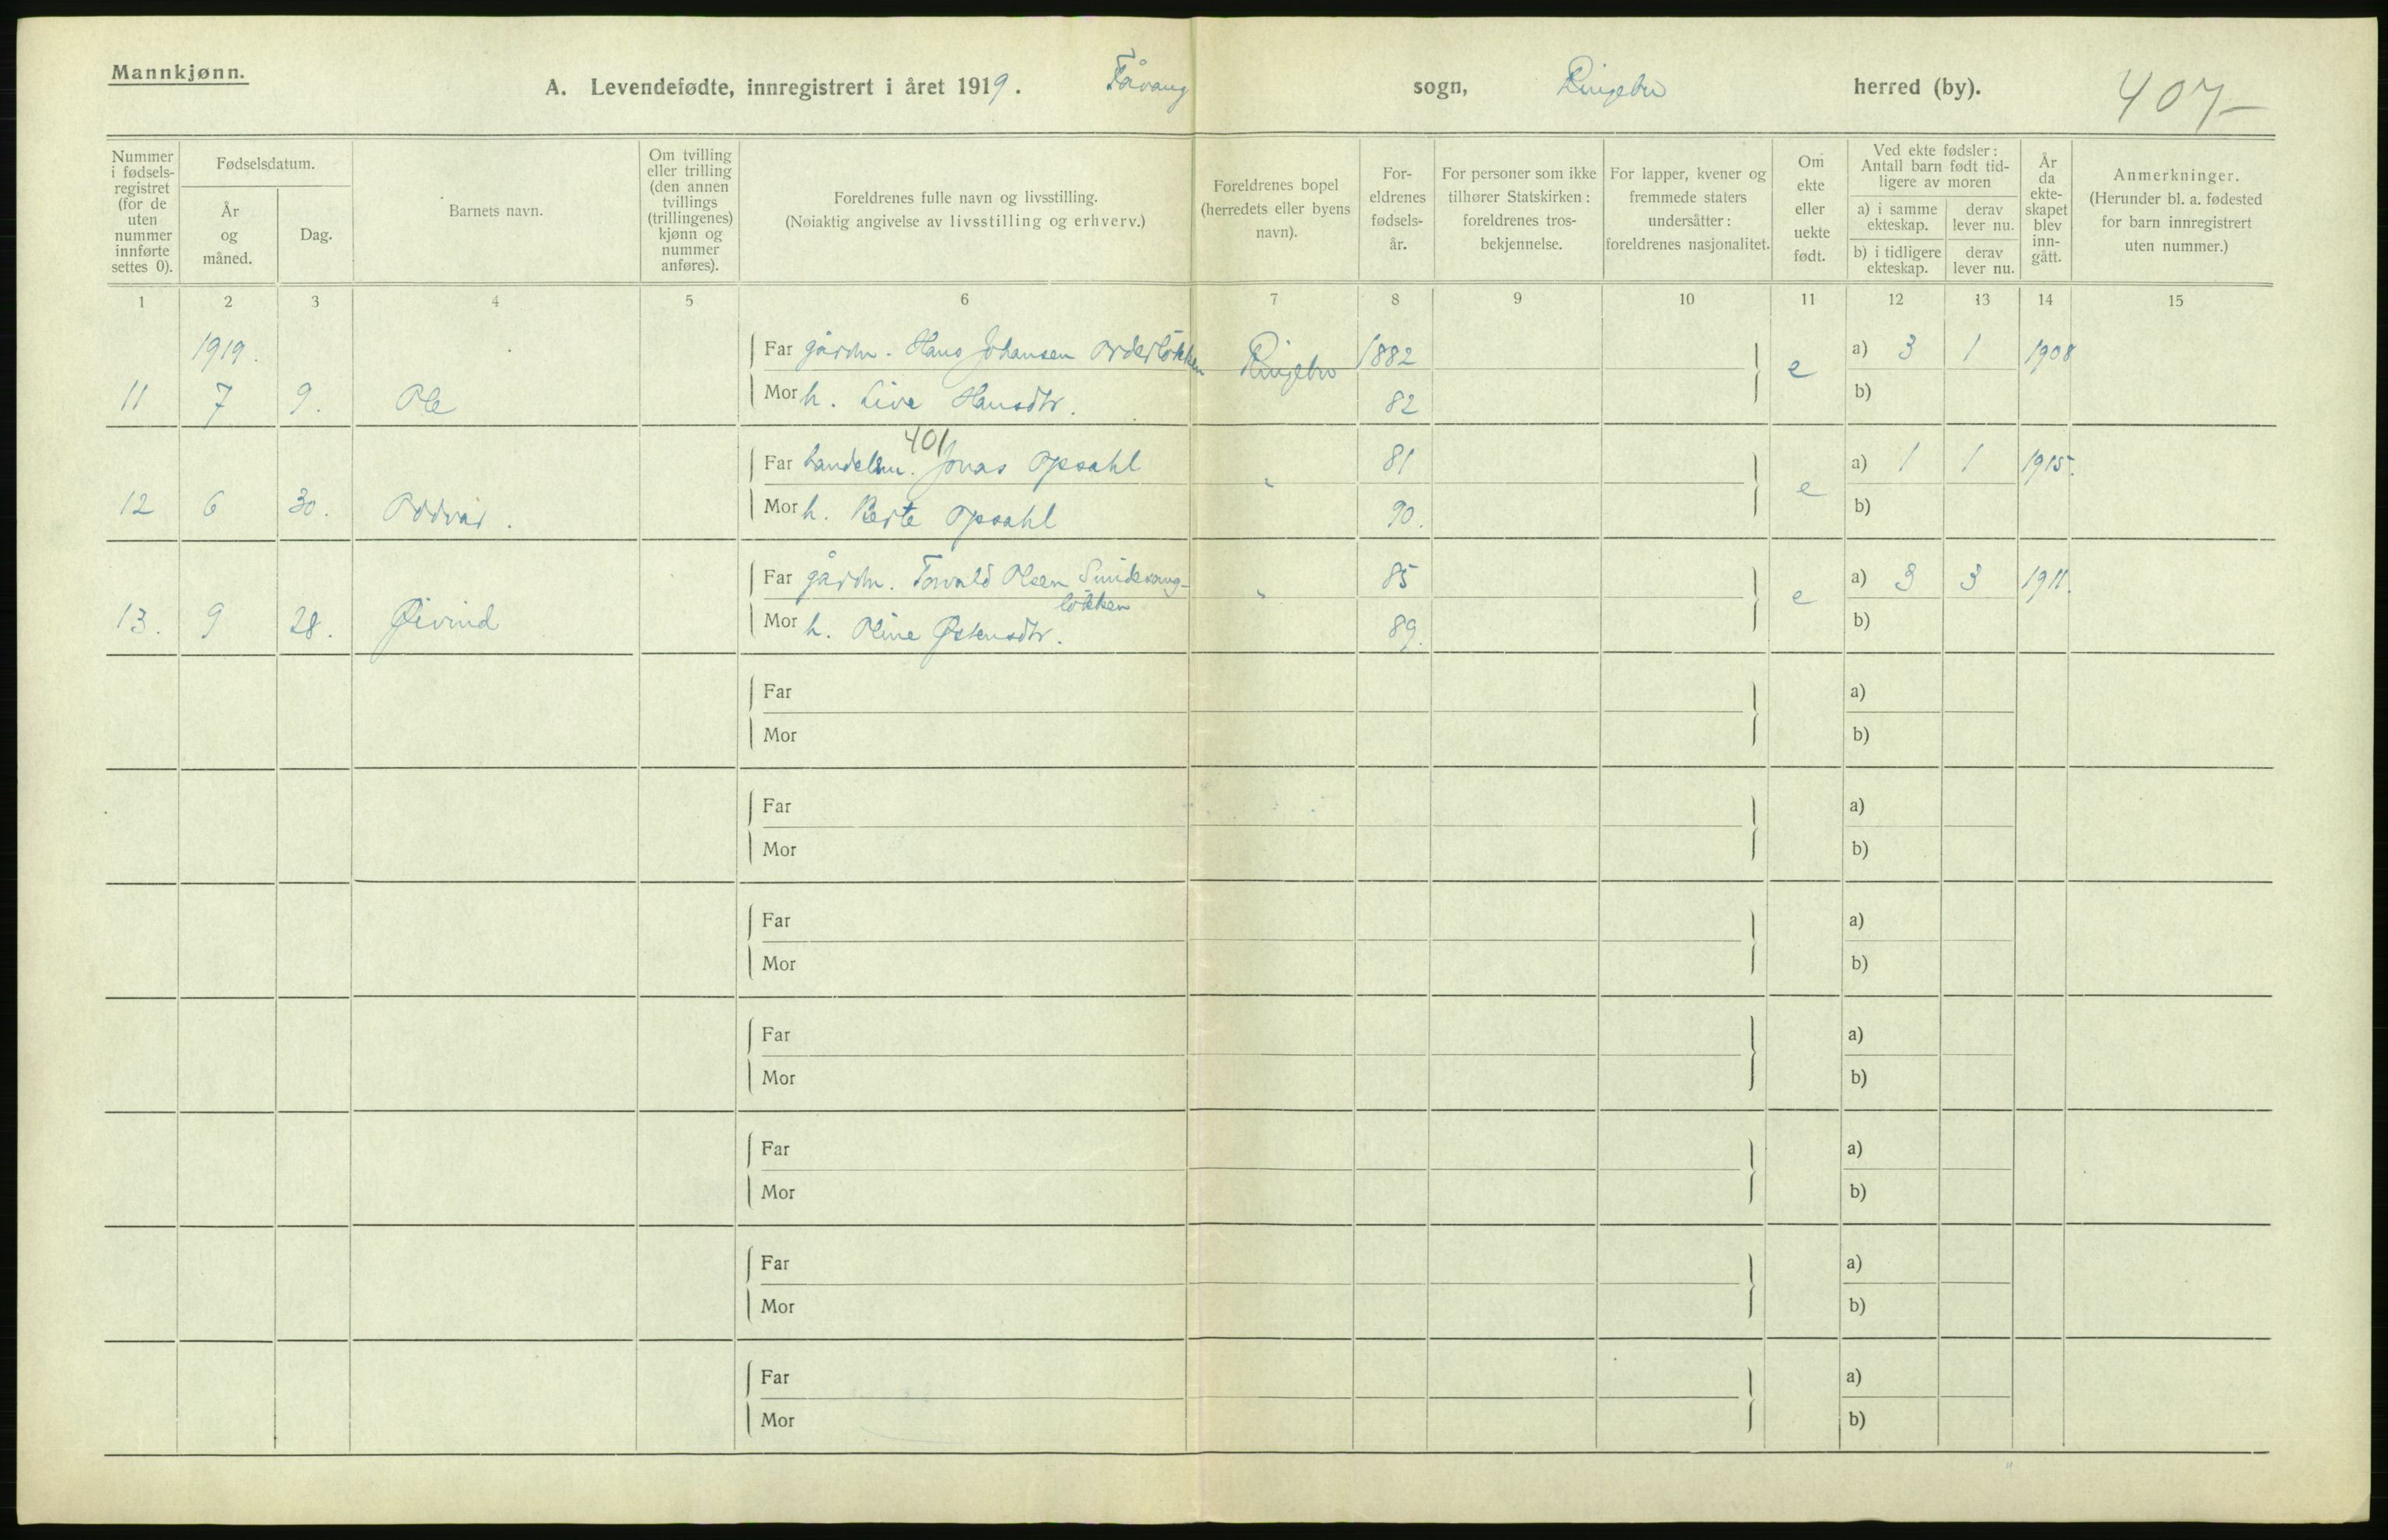 Mannkjønn.
A. Levendefødte, innregistrert i året 1919. Fåvang sogn, Ringebu herred (by). 407
Nummer i fødsels-registret (for de uten nummer innførte settes 0).
Fødselsdatum.
År og måned.
Dag.
Barnets navn.
Om tvilling eller trilling (den annen tvillings (trillingenes) kjønn og nummer anføres).
Foreldrenes fulle navn og livsstilling.
(Nøiaktig angivelse av livsstilling og erhverv.)
Foreldrenes bopel (herredets eller byens navn).
For-eldrenes fødsels-år.
For personer som ikke tilhører Statskirken: foreldrenes tros-bekjennelse.
For lapper, kvener og fremmede staters undersåtter: foreldrenes nasjonalitet.
Om ekte eller uekte født.
Ved ekte fødsler: Antall barn født tid-ligere av moren
a) i samme ekteskap.
derav lever nu.
b) i tidligere ekteskap.
derav lever nu.
År da ekte-skapet blev inn-gått.
Anmerkninger.
(Herunder bl. a. fødested for barn innregistrert uten nummer.)
1 2 3 4 5 6 7 8 9 10 11 12 13 14 15
1919. Far gårdm. Hans Johansen Ringebu 1882 e a) 3 1 1908
11 7 9. Ole Mor h. Live Hansdtr. 82 b)
401
Far handelsm. Jonas Opsahl " 81 e a) 1 1 1915.
12 6 30. Oddvar. Mor h. Berte Opsahl 90. b)
Far gårdm. Torvald Olsen " 85 e a) 3 3 1911.
løkken
13. 9 28. Øivind Mor h. Oline Østensdtr. 89. b)
Far a)
Mor b)
Far a)
Mor b)
Far a)
Mor b)
Far a)
Mor b)
Far a)
Mor b)
Far a)
Mor b)
Far a)
Mor b)